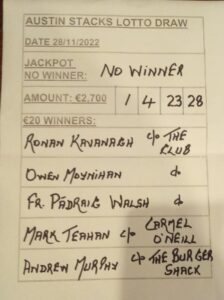 AUSTIN STACKS LOTTO DRAW
DATE 28/11/2022
JACKPOT
NO WINNER: NO WINNER
AMOUNT: €2,700 1 4 23 28
€20 WINNERS:
RONAN KAVANAGH c/o THE CLUB
OWEN MOYNIHAN c/o
FR. PÁDRAIG WALSH c/o
MARK TEAHAN c/o CARMEL O'NEILL
ANDREW MURPHY c/o THE BURGER SHACK